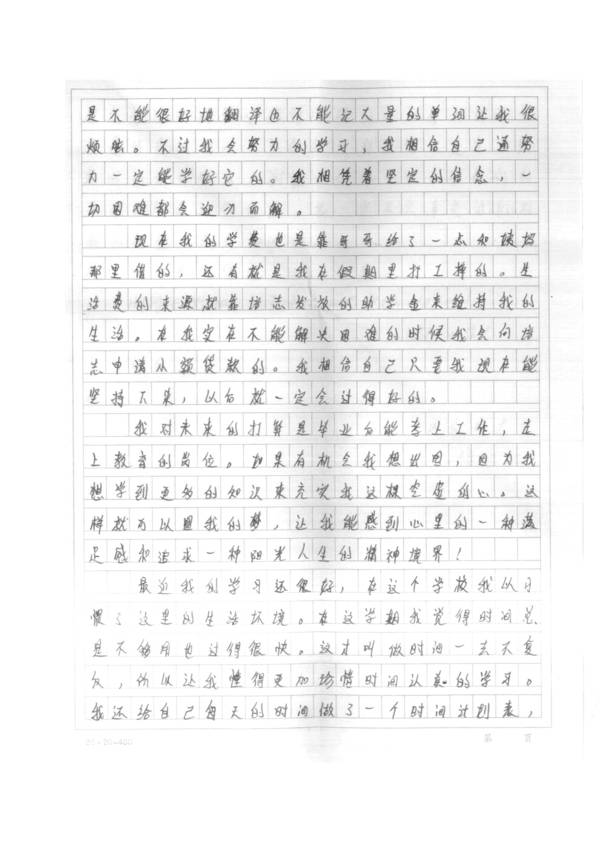 是不能很好地翻译也不能记大量的单词让我很
烦恼。不过我会努力的学习，我相信自己通努
力一定能学好它的。我相凭着坚定的信念，一
切困难都会迎刃而解。
现在我的学费也是靠哥哥给了一点和姨妈
那里借的，还有就是我在假期里打工挣的。生
活费的来源就靠培志发放的助学金来维持我的
生活。在我实在不能解决困难的时候我会向培
志申请从额贷款的。我相信自己只要我现在能
坚持下来，以后就一定会过得好的。
我对未来的打算是毕业后能考上工作，走
上教育的岗位。如果有机会我想出国，因为我
想学到更多的知识来充实我这颗空虚的心。这
样就可以圆我的梦，让我能感到心里的一种满
足感和追求一种阳光人生的精神境界！
最近我的学习还很好，在这个学校我以习
惯了这里的生活环境。在这学期我觉得时间总
是不够用也过得很快。这才叫做时间一去不复
反，所以让我懂得更加珍惜时间认真的学习。
我还给自己每天的时间做了一个时间计划表，
20×20=400 第 页